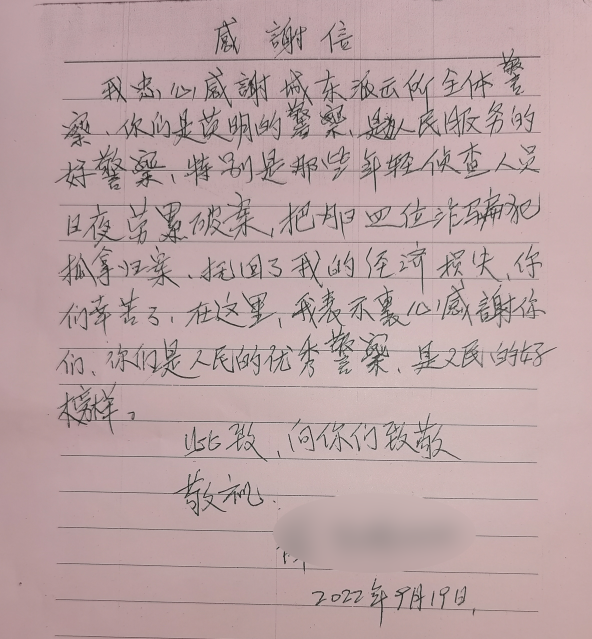 感謝信
我忠心感謝城东派出所全体警
察、你们是英明的警察,是为人民服务的
好警察、特别是那些年轻侦查人员
日夜劳累破案,把四位诈骗犯
抓拿归案、挽回了我的经济损失,你
们幸苦了,在这里,我表示裏心感謝你
们、你们是人民的优秀警察、是人民的好
榜样。
此致,向你们致敬
敬礼
2022年9月19日,